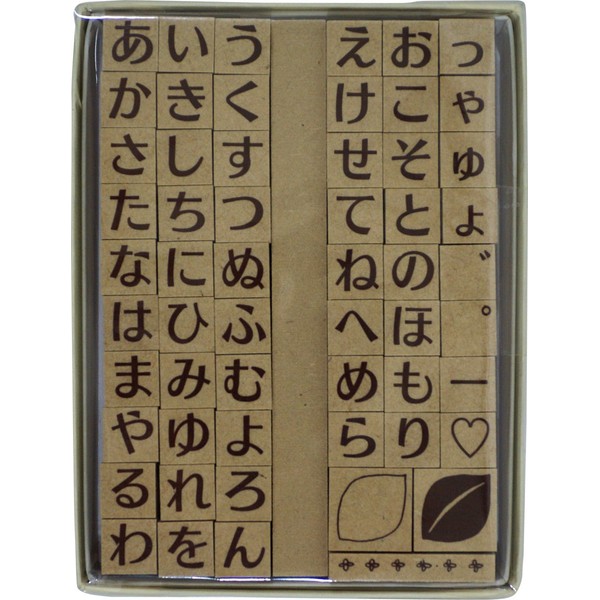 あいう えおっ
かきく けこゃ
さしす せそゅ
たちつ てとょ
なにぬ ねの゛
はひふ へほ゜
まみむ めもー
やゆよ らり♡
るれろ
わをん